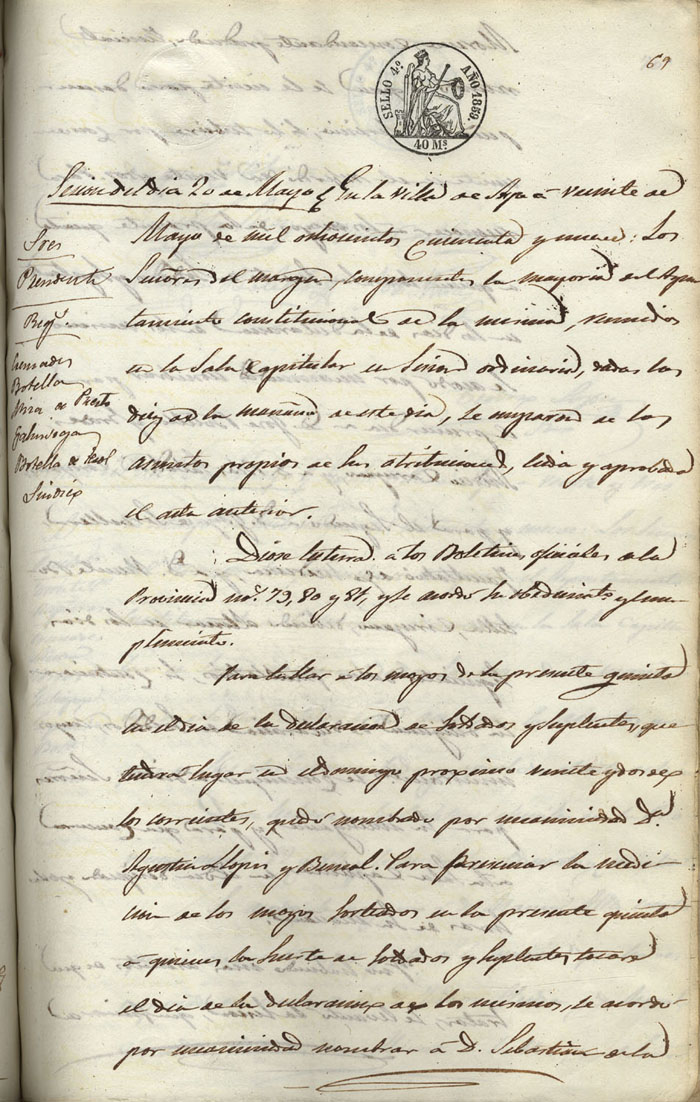 69
SELLO 4º AÑO 1859.
40 Ms
Sesion del dia 20 de Mayo En la villa de à veinte de
Sres
Presidente
Regs.
Botella
Mira de
Botella de
Sindico
Mayo de mil ochocientos cincuenta y nueve: Los
Señores del margen, componentes la mayoria del Ayun
tamiento constitucional de la misma, reunidos
en la Sala Capitular en Sesion ordinaria, dadas las
diez de la mañana de este dia, se ocuparon de los
asuntos propios de sus atribuciones, leida y aprobada
el acta anterior.
Diose lectura a los Boletines oficiales de la
Provincia nos. 79, 80 y 81, y se acordó su obedecimiento y cum
plimiento.
Para tallar a los mozos de la presente quinta
en el dia de la declaracion de Soldados y Suplentes, que
tendra lugar en el domingo proximo veinte y dos de
los corrientes, quedó nombrado por unanimidad Dn.
Agustin Llopis y Bernal. Para presenciar la medi
cion de los mozos sorteados en la presente quinta
a quienes la suerte de Soldados y Suplentes tocare
el dia de la declaracion de los mismos, se acordó
por unanimidad nombrar à D. Sebastian de la